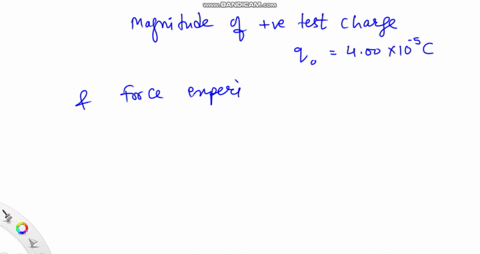 www.BANDICAM.com
Magnitude of +ve test charge
q₀ = 4.00 × 10⁻⁵ C
& force experi